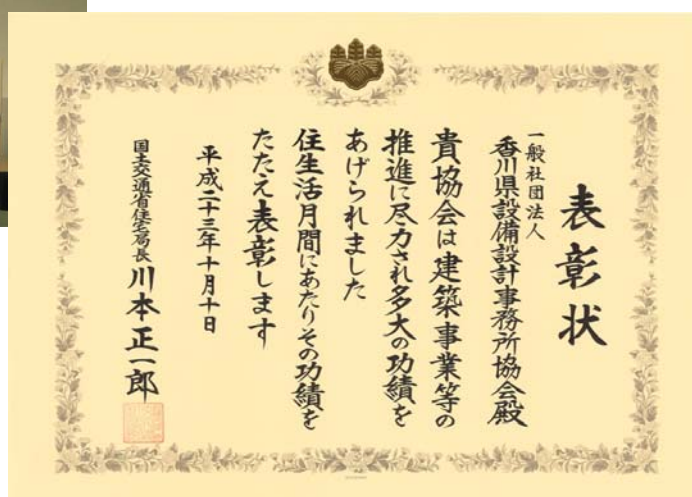 表彰状
一般社団法人
香川県設備設計事務所協会殿
貴協会は建築事業等の
推進に尽力され多大の功績を
あげられました
住生活月間にあたりその功績を
たたえ表彰します
平成二十三年十月十日
国土交通省住宅局長 川本正一郎